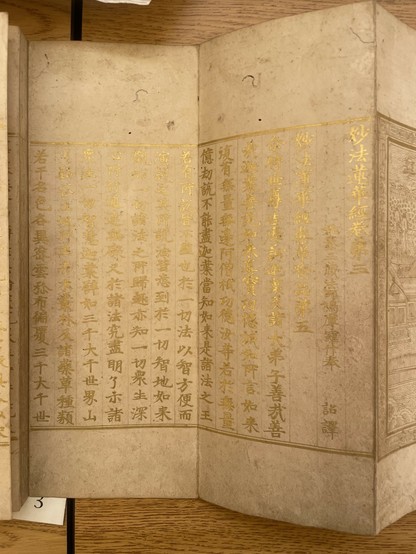 妙法蓮華經卷第三
姚秦三藏法師鳩摩羅什奉 詔譯
妙法蓮華經藥草喻品第五
爾時世尊告摩訶迦葉及諸大弟子善哉善
哉迦葉善說如來真實功德誠如所言如來
復有無量無邊阿僧祇功德汝等若於無量
億劫說不能盡迦葉當知如來是諸法之王
若有所說皆不虛也於一切法以智方便而
演說之其所說法皆悉到於一切智地如來
觀知一切諸法之所歸趣亦知一切衆生深
心所行通達無礙又於諸法究盡明了示諸
衆生一切智慧迦葉譬如三千大千世界山
川谿谷土地所生卉木叢林及諸藥草種類
若干名色各異密雲弥布遍覆三千大千世
3